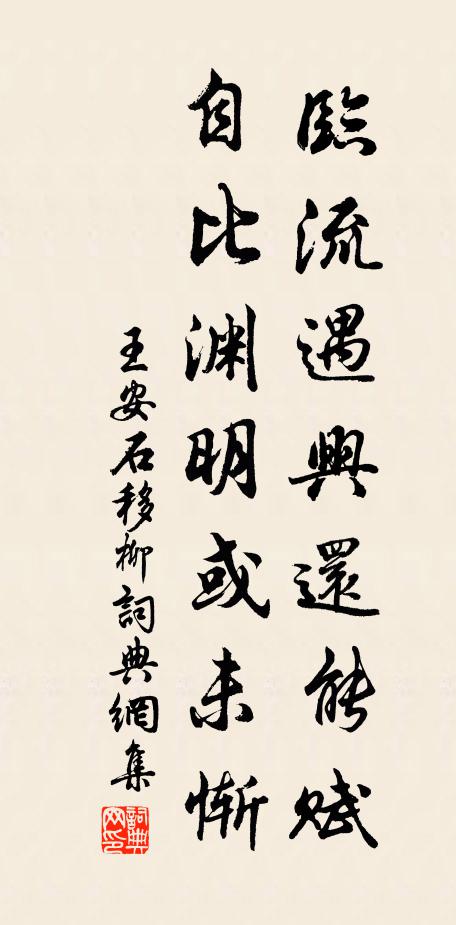 臨流遇興還能賦
自比渊明或未慚
王安石移柳詞典網集
詞典网印